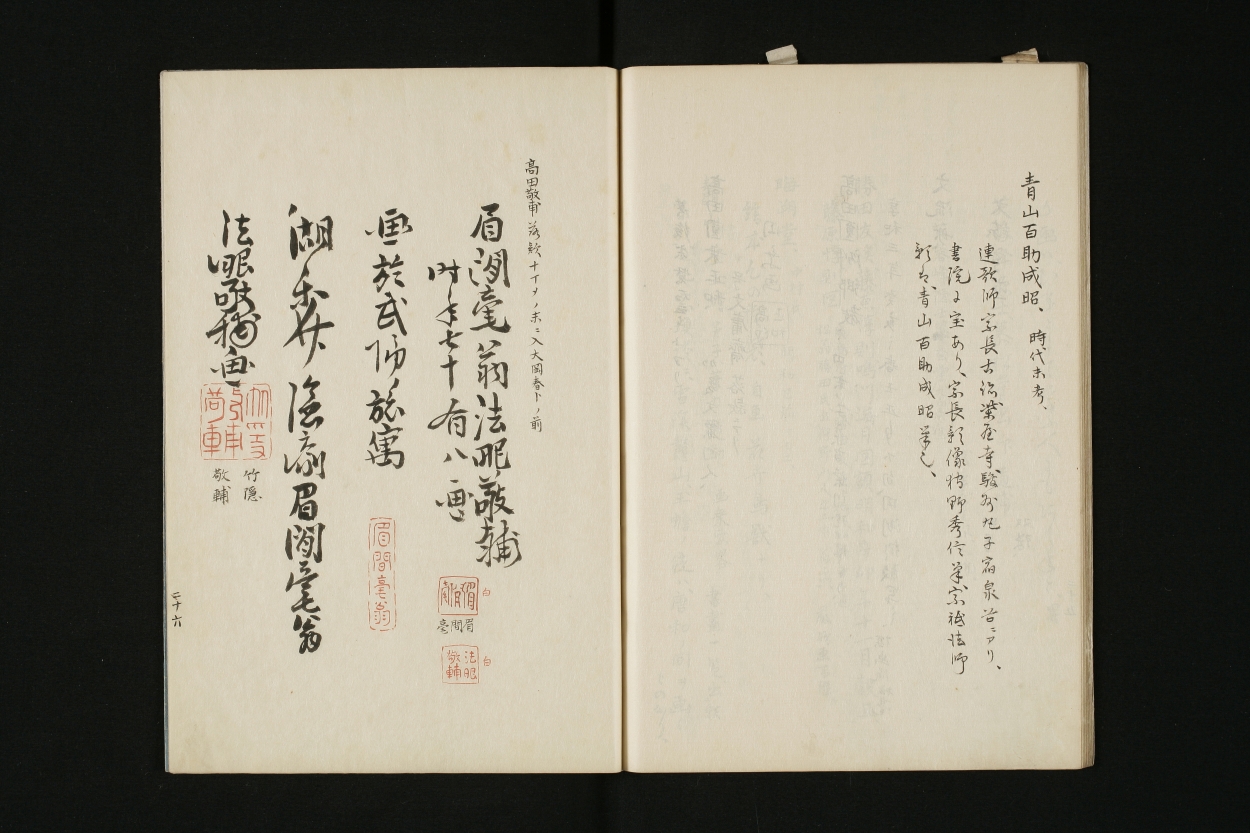 青山百助成昭、時代未考、
連歌師宗長古跡柴屋寺駿州丸子宿泉谷ニアリ、
書院に宝あり、宗長影像狩野秀信筆宗祇法師
影は、青山百助成昭筆也、
高田敬甫落款十丁メノ末ニ入大岡春卜ノ前
眉間毫翁法眼敬輔
時年七十有八画
白
眉間毫
白
法眼敬輔
画於武陽旅寓
眉間毫翁
湖東竹隐斎眉間毫翁
法眼敬輔画
竹隠
敬輔
二十六